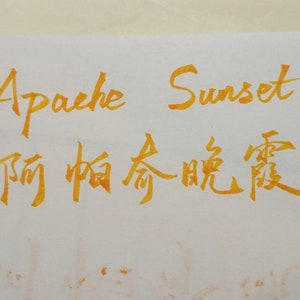 Apache Sunset
阿帕奇晚霞